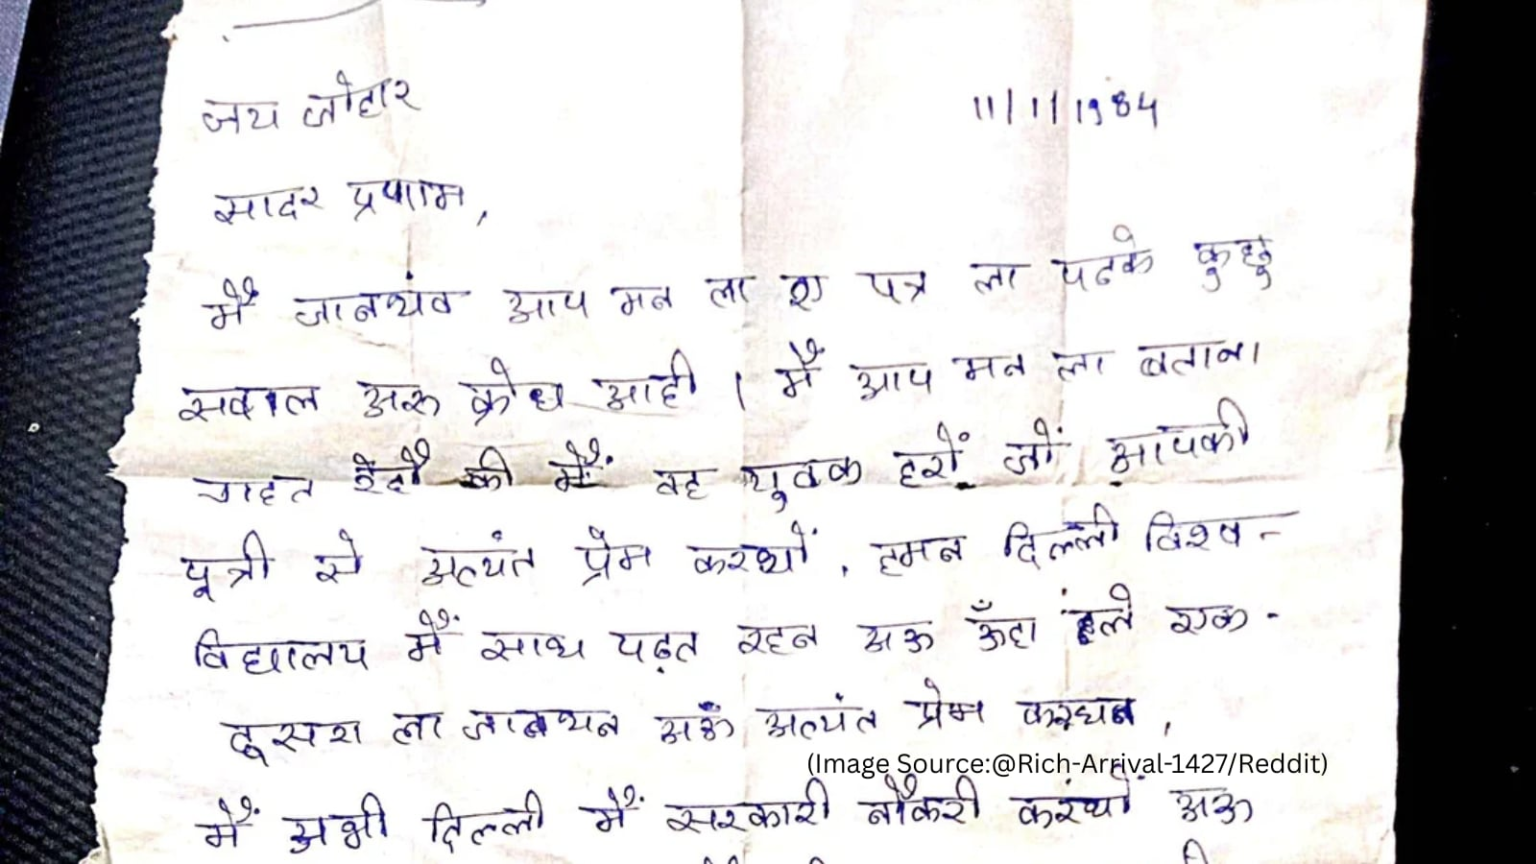 जय जोहार
11/1/1984
सादर प्रणाम,
मैं जानथंव आप मन ला ए पत्र ला पढके कुछु
सवाल अरू क्रोध आही। मैं आप मन ला बताना
चाहत की मैं वह युवक हरों जों आपकी
पूत्री से अत्यंत प्रेम करथों, हमन दिल्ली विश्व-
विद्यालय मैं साथ पढ़त रहन अऊ ऊँहा ले एक-
दूसरा ला जानथन अऊ अत्यंत प्रेम करथन,
(Image Source:@Rich-Arrival-1427/Reddit)
मैं अभी दिल्ली मैं सरकारी नौकरी करथों अऊ